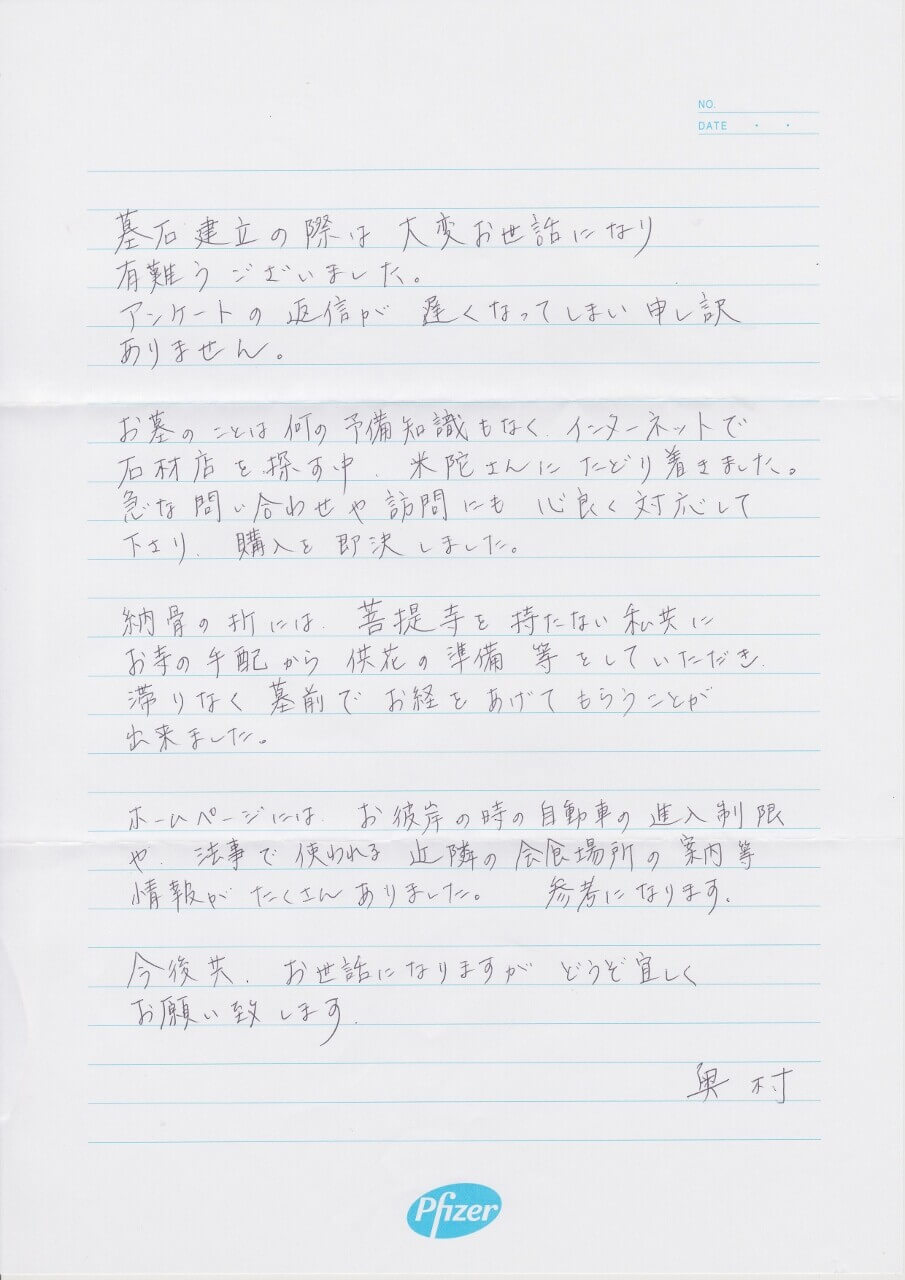 NO.
DATE ・ ・
墓石建立の際は 大変お世話になり
有難うございました。
アンケートの 返信が 遅くなってしまい 申し訳
ありません。
お墓のことは 何の予備知識もなく、インターネットで
石材店を 探す中、米陀さんに たどり着きました。
急な 問い合わせや 訪問にも 心良く 対応して
下さり、購入を 即決しました。
納骨の折には、菩提寺を 持たない 私共に
お寺の手配から 供花の準備 等をしていただき、
滞りなく 墓前で お経を あげてもらうことが
出来ました。
ホームページには、お彼岸の時の自動車の進入制限
や、法事で 使われる 近隣の会食場所の案内等
情報が たくさんありました。 参考になります。
今後共、お世話になりますが どうぞ宜しく
お願い致します。
奥村
Pfizer